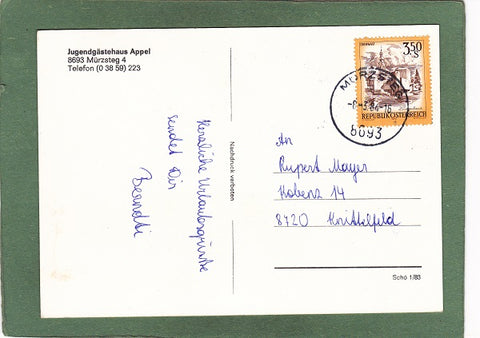 Jugendgästehaus Appel
8693 Mürzsteg 4
Telefon (0 38 59) 223
Herzliche Urlaubsgrüße
sendet Dir
Nachdruck verboten
3.50
S
REPUBLIK ÖSTERREICH
MÜRZSTEG
8693
An
Rupert Mayer
Kobenz 14
8720 Knittelfeld
Scho 1/83